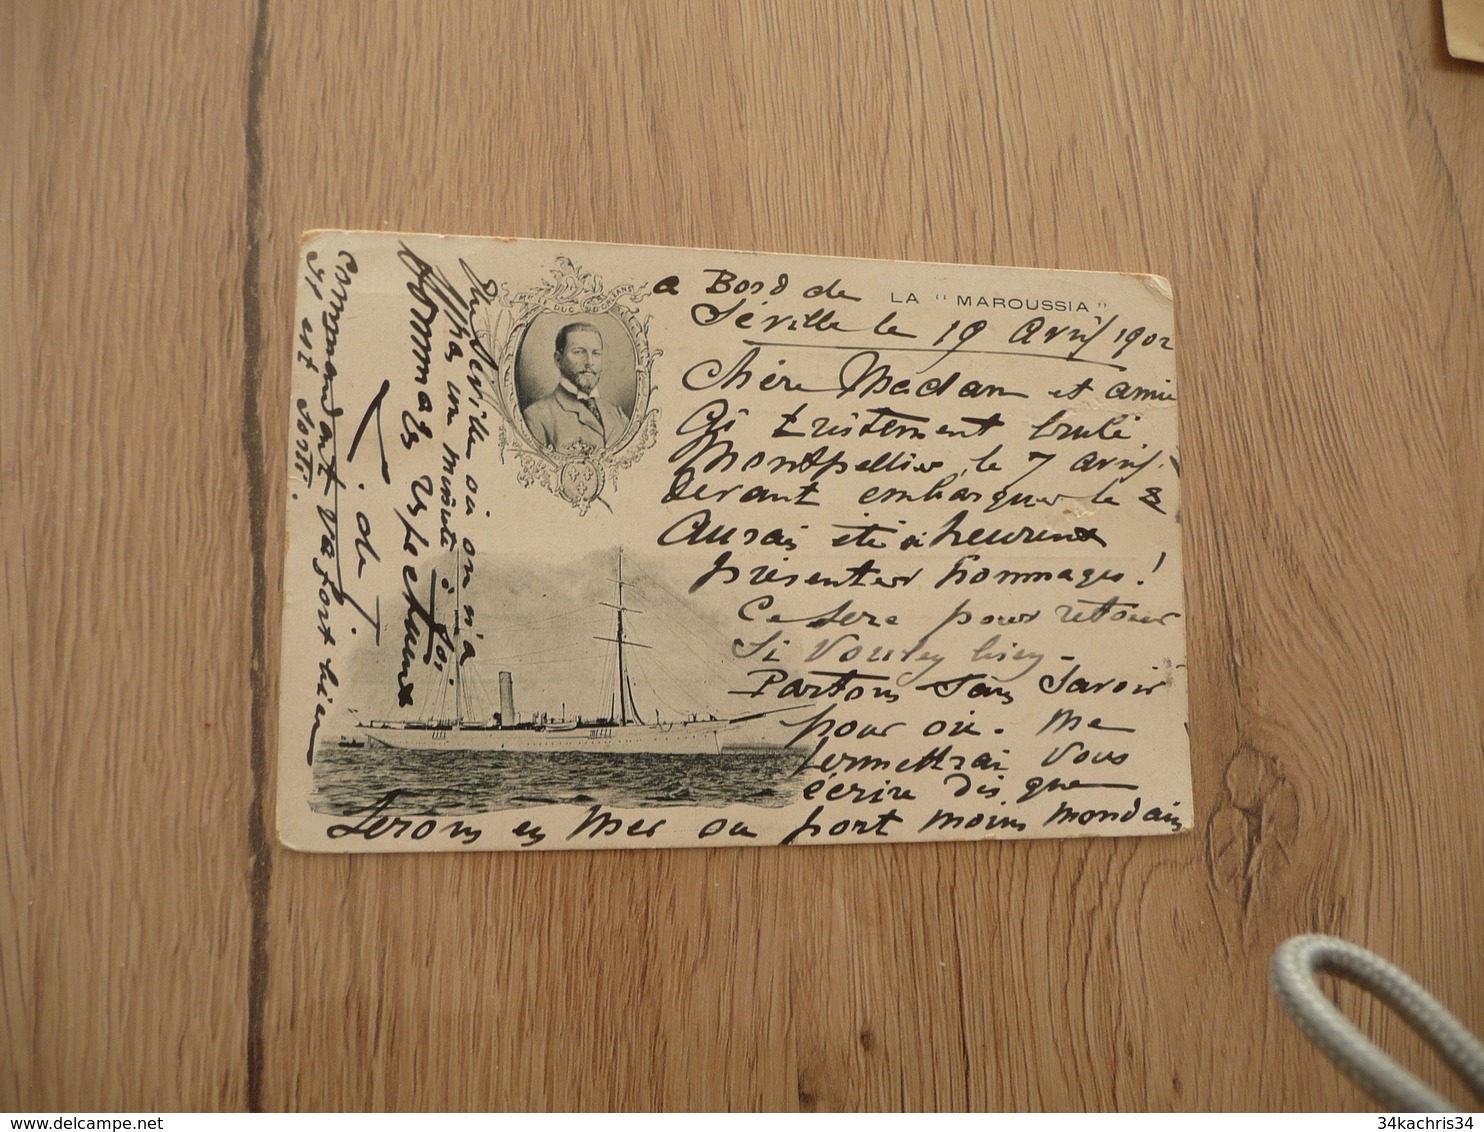 a Bord de LA "MAROUSSIA"
Séville le 19 Avril 1902
Chère Madam et amie
Ai tristement brulé
Montpellier, le 7 avril.
devant embarquer le 8
Aurais été si heureux
présenter hommages!
Ce sera pour retour
Si Voulez bien -
Partons sans savoir
pour où. Me
permettrai Vous
écrire dès que
serons en Mer ou port moins mondain
que Séville où on n'a
pas un minute à soi.
Hommages respectueux
J. de
commandant va fort bien
il est sorti.
MGR LE DUC D'ORLÉANS
34kachris34